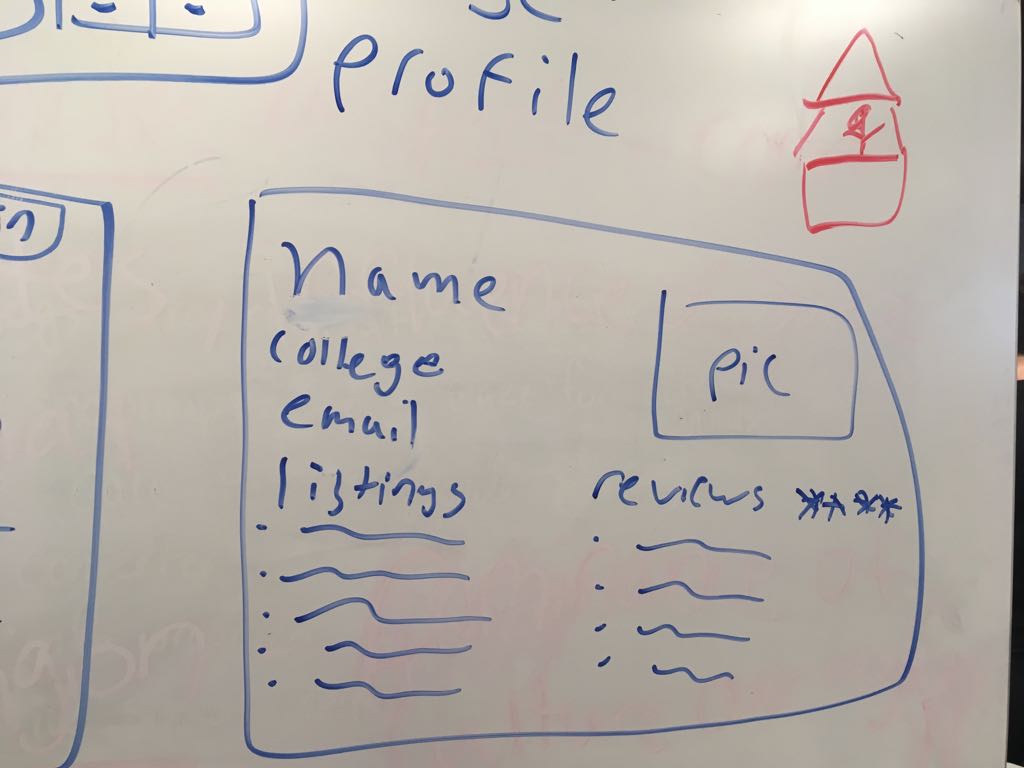 profile
in
Name
college
email
pic
listings
reviews ****